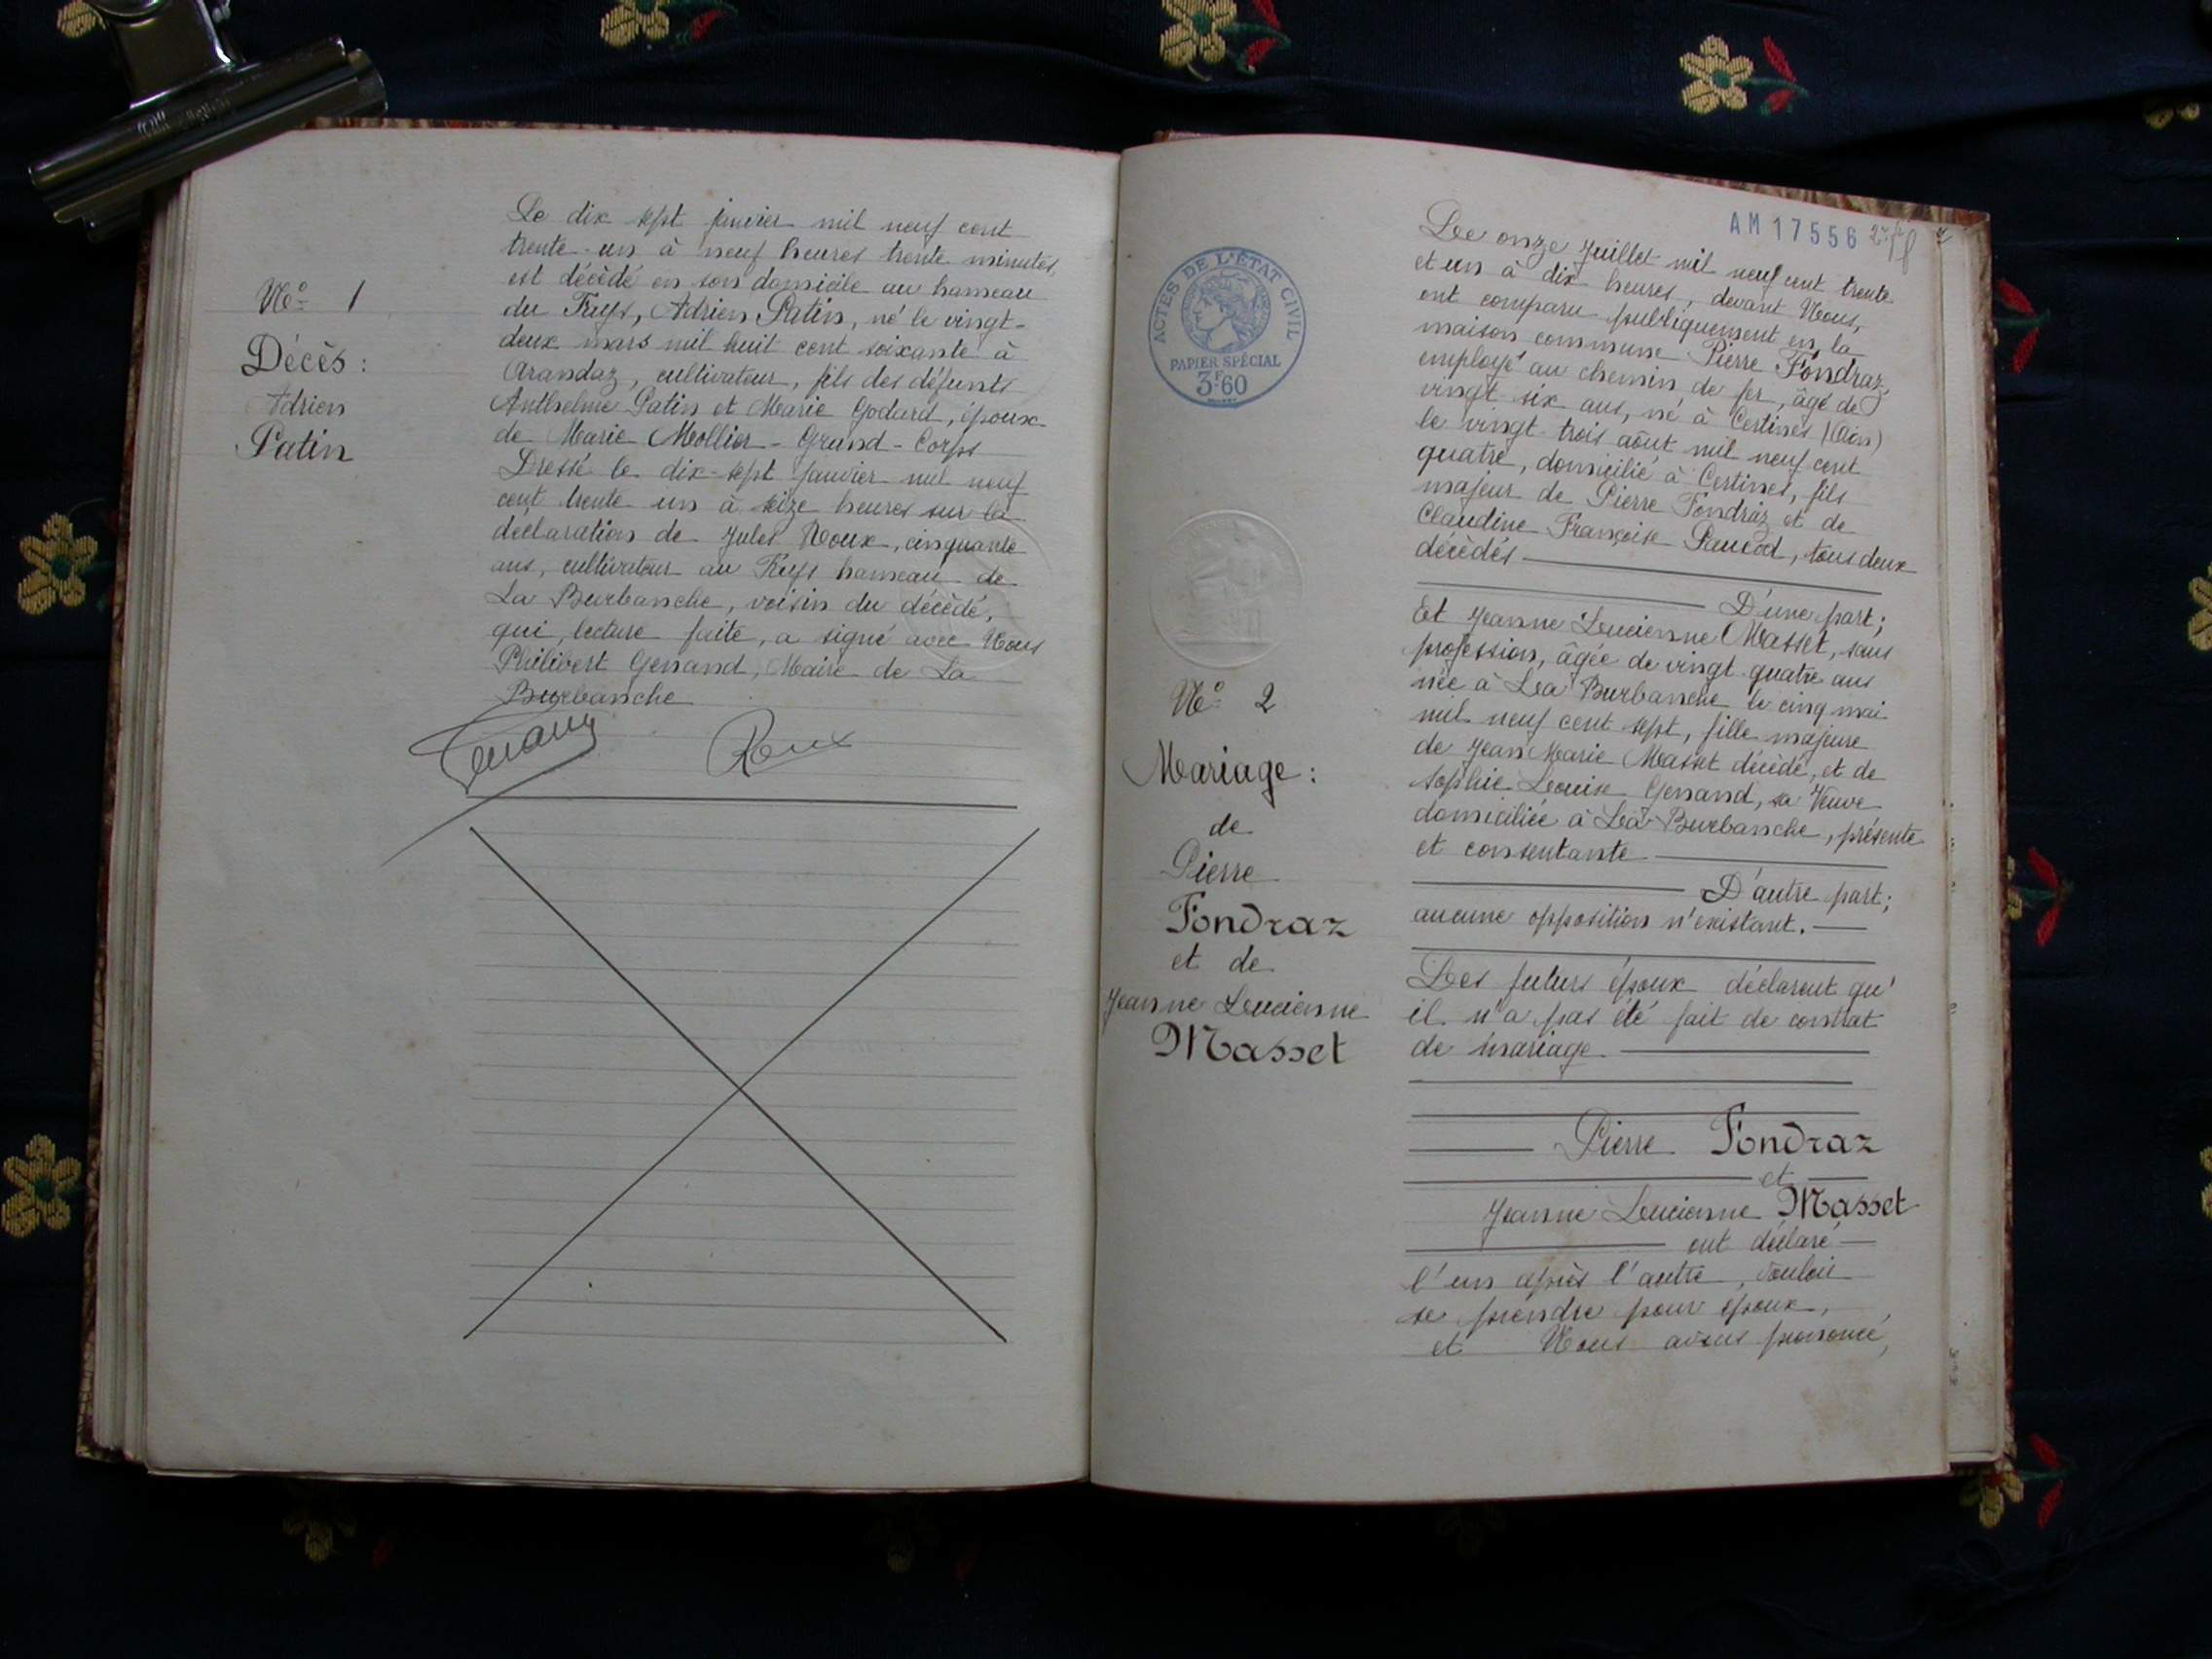 N° 1
Décès :
Adrien
Patin
Le dix sept janvier mil neuf cent
trente-un à neuf heures trente minutes,
est décédé en son domicile au hameau
du Fays, Adrien Patin, né le vingt-
deux mars mil huit cent soixante à
Arandaz, cultivateur, fils des défunts
Anthelme Patin et Marie Godard, époux
de Marie Mollier-Grand-Corps
Dressé le dix-sept janvier mil neuf
cent trente un à seize heures sur la
déclaration de Jules Roux, cinquante
ans, cultivateur au Fays hameau de
La Burbanche, voisin du décédé,
qui, lecture faite, a signé avec Nous
Philibert Genand, Maire de La
Burbanche
Genand Roux
ACTES DE L'ÉTAT CIVIL
PAPIER SPÉCIAL
3F60
N° 2
Mariage :
de
Pierre
Fondraz
et de
Jeanne Lucienne
Masset
AM 17556
Le onze Juillet mil neuf cent trente
et un à dix heures, devant Nous,
ont comparu publiquement en la
maison commune Pierre Fondraz,
employé au chemin de fer, âgé de
vingt six ans, né à Certines (Ain)
le vingt-trois août mil neuf cent
quatre, domicilié à Certines, fils
majeur de Pierre Fondraz et de
Claudine Françoise Paucod, tous deux
décédés
D'une part;
Et Jeanne Lucienne Masset, sans
profession, âgée de vingt-quatre ans
née à La Burbanche le cinq mai
mil neuf cent sept, fille majeure
de Jean Marie Masset décédé, et de
Sophie Louise Genand, sa Veuve
domiciliée à La Burbanche, présente
et consentante
D'autre part;
aucune opposition n'existant.
Les futurs époux déclarent qu'
il n'a pas été fait de contrat
de mariage.
Pierre Fondraz
et
Jeanne Lucienne Masset
ont déclaré
l'un après l'autre, vouloir
se prendre pour époux,
et Nous avons prononcé,